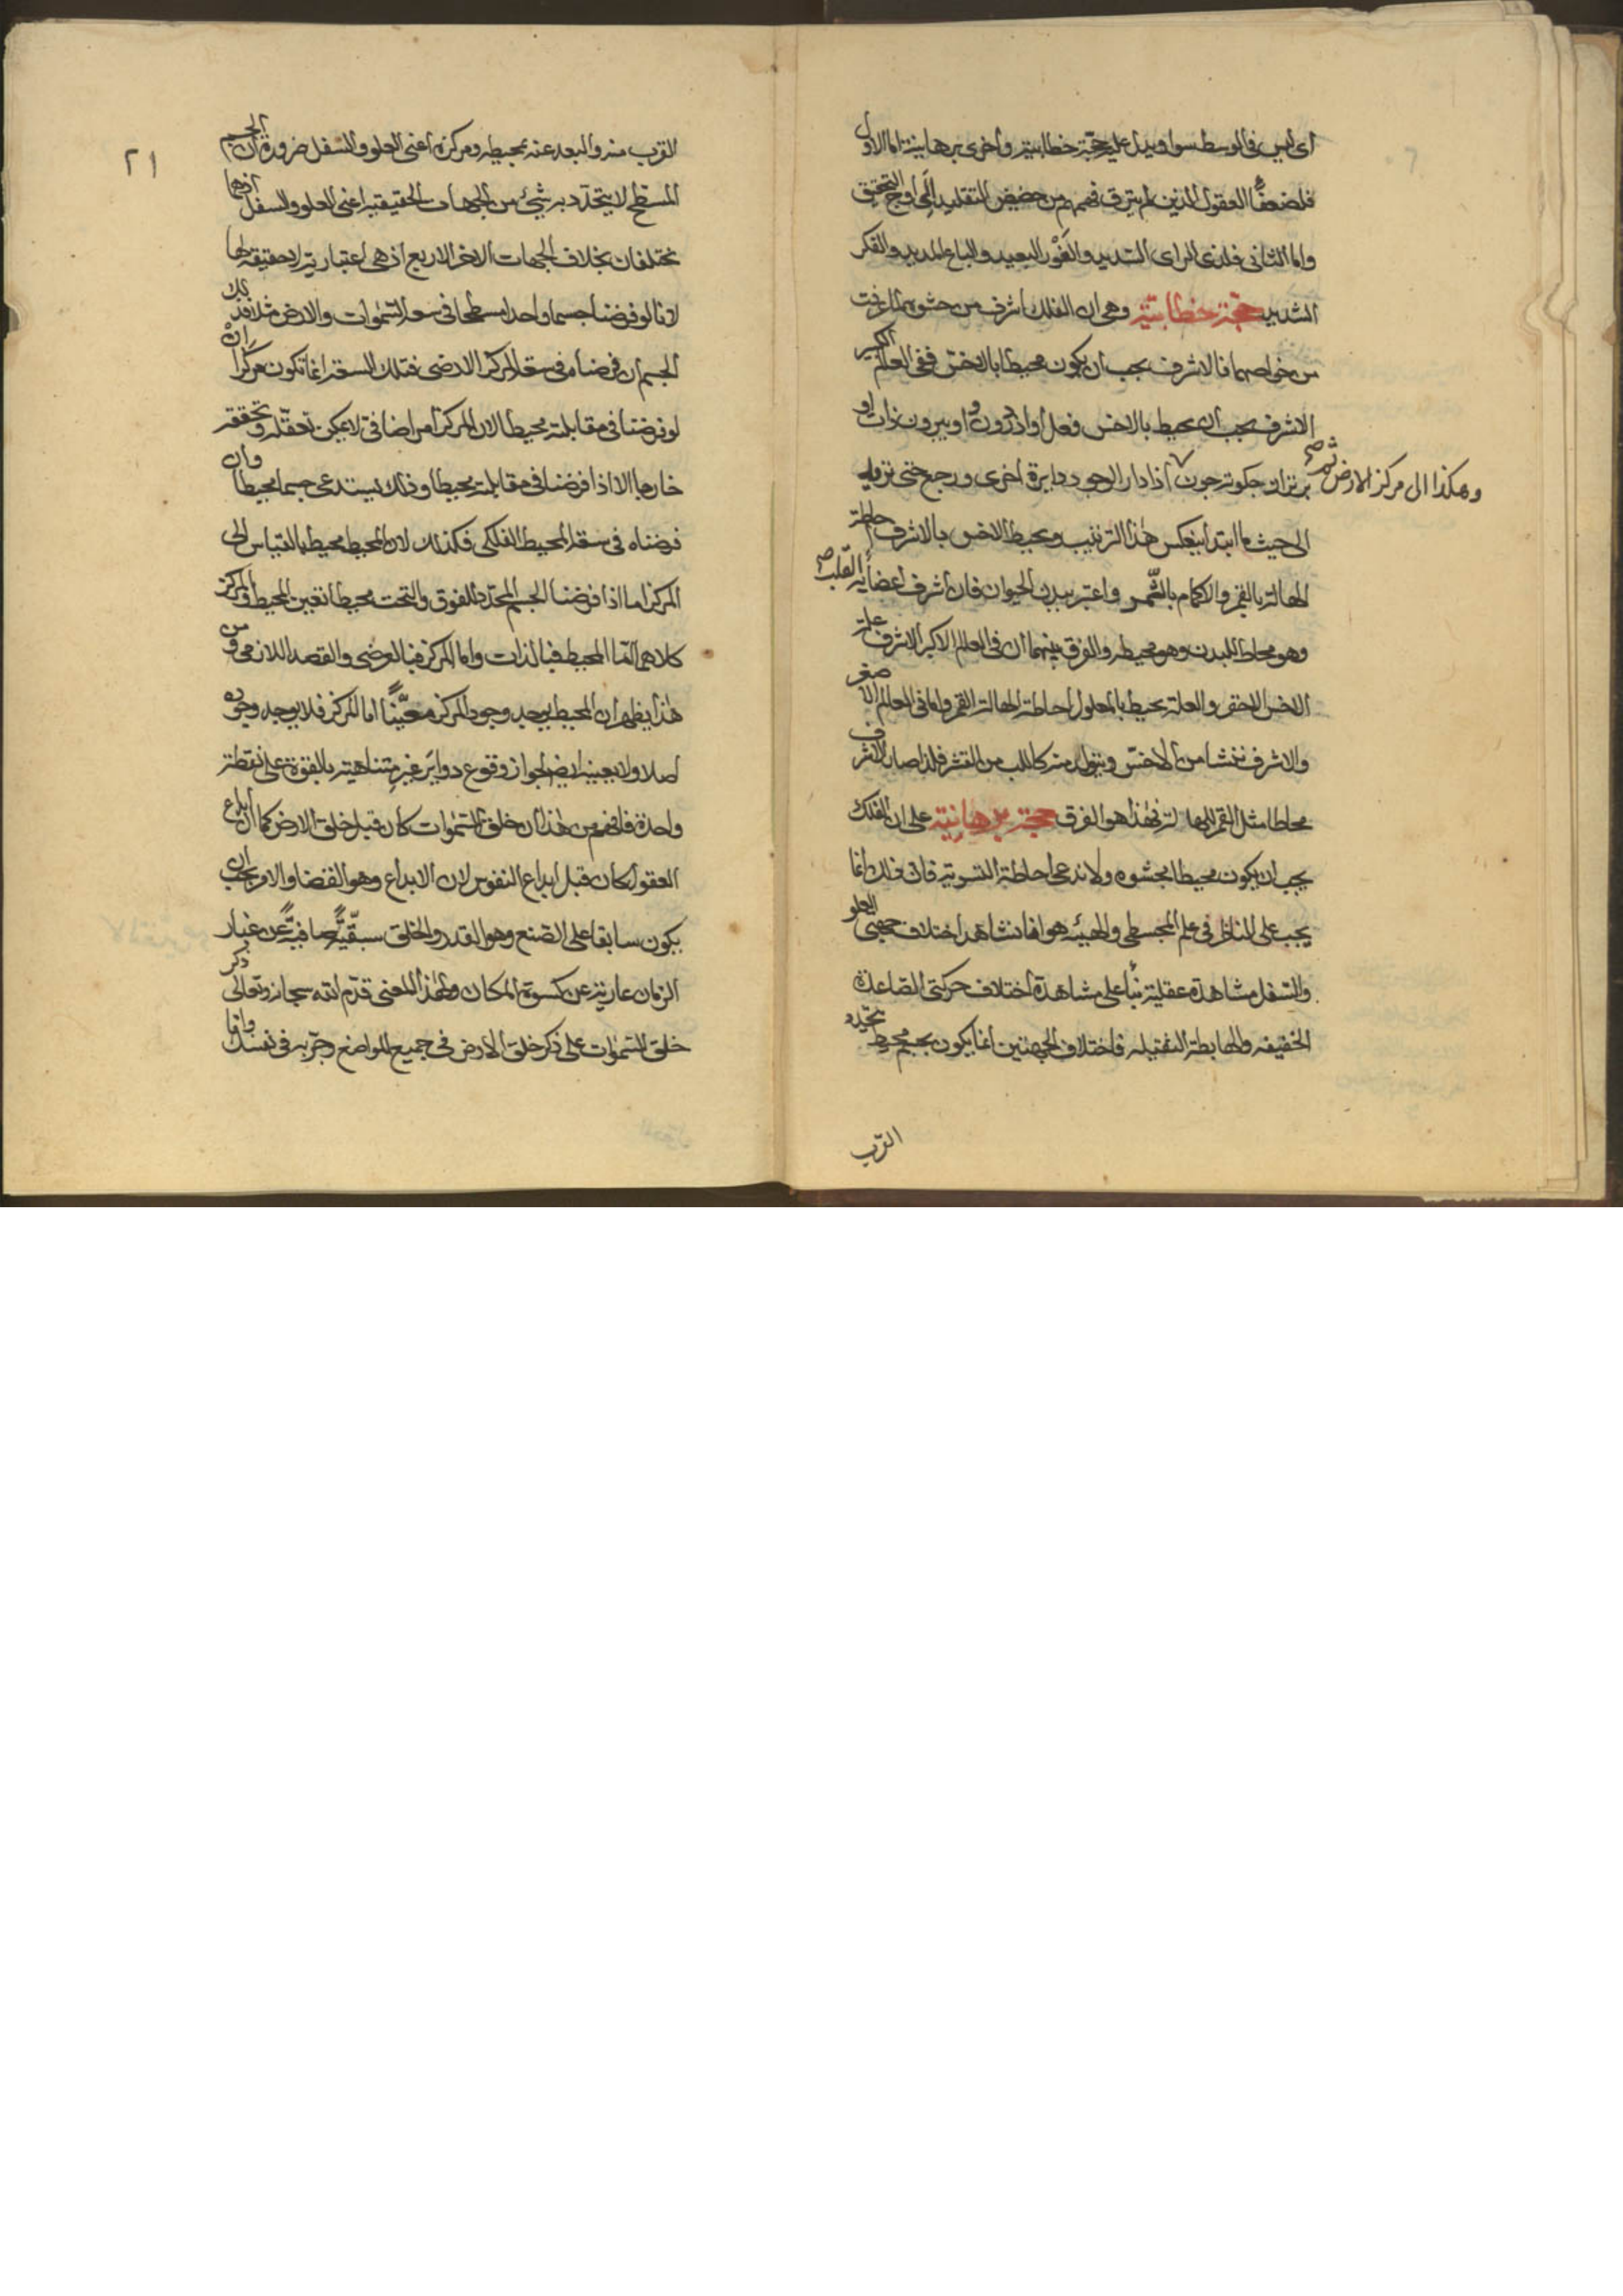 اى ليس فى الوسط سواه ويدل عليه حجة خطابية واخرى برهانية اما الاول
فلضعفاء العقول الذين لم يترق فهمهم من حضيض التقليد الى اوج التحقيق
واما الثانى فلذى الراى السديد والغور البعيد والباع المديد والفكر
الشديد حجة خطابية وهى ان الفلك اشرف من حشوه لما عرفت
من خواصهما فالاشرف يجب ان يكون محيطا بالاخس ففى العالم الكبير
الاشرف يجب ان يحيط بالاخس فعل او از درون و او بيرون ذات او
برتر از چگونه چون اذا دار الوجود دايرة اخرى ورجع حتى نزوله
وهكذا الى مركز الارض ثم صح
الى حيث ما ابتدا ينعكس هذا الترتيب ويحيط الاخس بالاشرف احاطة
الهالة بالقمر والاكمام بالثمر واعتبر ببدن الحيوان فان اشرف اعضائه القلب صح
وهو محاط للبدن وهو محيطه والفرق بينهما ان فى العالم الاكبر الاشرف علة
الاخس الاحقر والعلة يحيط بالمعلول احاطة الهالة القمر واما فى العالم الاصغر
والاشرف ينشا من الاخس ويتولد منه كاللب من القشر فلذا صار الاشرف
محاطا مثل القمر للهالة فهذا هو الفرق حجة برهانية على ان الفلك
يجب ان يكون محيطا بحشوه ولا ندعى احاطة التسوية فان ذلك انما
يجب على الناظر فى علم المجسطى والهيئه هو انا نشاهد اختلاف جهتى العلو
والسفل مشاهدة عقلية بناء على مشاهدة اختلاف حركتى الصاعدة
الخفيفه والهابطة الثقيله فاختلاف الجهتين انما يكون بجسم محيط يتحدد
القرب
٢١
القرب منه والبعد عنه بمحيطه ومركزه اعنى العلو والسفل ضرورة ان الجسم
المسطح لا يتحدد به شيئ من الجهات الحقيقية اعنى العلو والسفل اذهما
مختلفان بخلاف الجهات الاخر الاربع اذ هى اعتبارية لا حقيقة لها
لانا لو فرضنا جسما واحدا مسطحا فى سعة السموات والارض مثلا فذلك
الجسم ان فرضناه فى سعة المركز الارضى فتلك السعة انما تكون مركزا ان
لو فرضنا فى مقابلته محيطا لان المركز امر اضافى لا يمكن تعقله وتحققه
خارجا الا اذا فرضنا فى مقابلته محيطا وذلك يستدعى جسما محيطا وان
فرضناه فى سعة المحيط الفلكى فكذلك لان المحيط محيط بالقياس الى
المركز اما اذا فرضنا الجسم المحدد للفوق والتحت محيطا تعين المحيط والمركز
كلاهما اما المحيط فبالذات واما المركز فبالعرضى والقصد اللازمى ومن
هذا يظهر ان المحيط يوجد وجود المركز معينا اما المركز فلا يوجد وجوده
اصلا ولا يعينه ايضا لجواز وقوع دواير غير متناهيه بالقوة على نقطة
واحدة فافهم من هذا ان خلق السموات كان قبل خلق الارض كما ان ابداع
العقول كان قبل ابداع النفوس لان الابداع وهو القضا والامر يجب ان
يكون سابقا على الصنع وهو القدر والخلق سبقية صافية عن غبار
الزمان عارية عن كسوة المكان ولهذا المعنى قدم الله سبحانه وتعالى ذكر
خلق السموات على ذكر خلق الارض فى جميع المواضع وجربه فى نفسك وانما